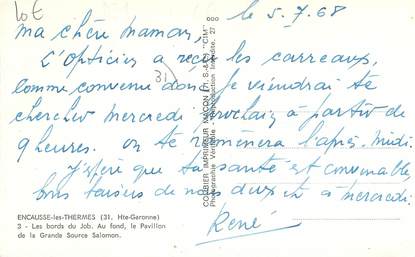 10€
le 5.7.68
ma chère maman,
L'opticien a reçu les carreaux,
31
comme convenu donc je viendrai te
chercher mercredi prochain à partir de
9 heures. on te ramènera l'après-midi.
J'espère que ta santé est convenable,
bons baisers de nous deux et à mercredi.
René
ENCAUSSE-les-THERMES (31, Hte-Garonne)
3 - Les bords du Job. Au fond, le Pavillon
de la Grande Source Salomon.
COMBIER IMPRIMEUR MACON (71, S.-&-L.) "CIM"
Photographie Véritable - Reproduction Interdite. 27